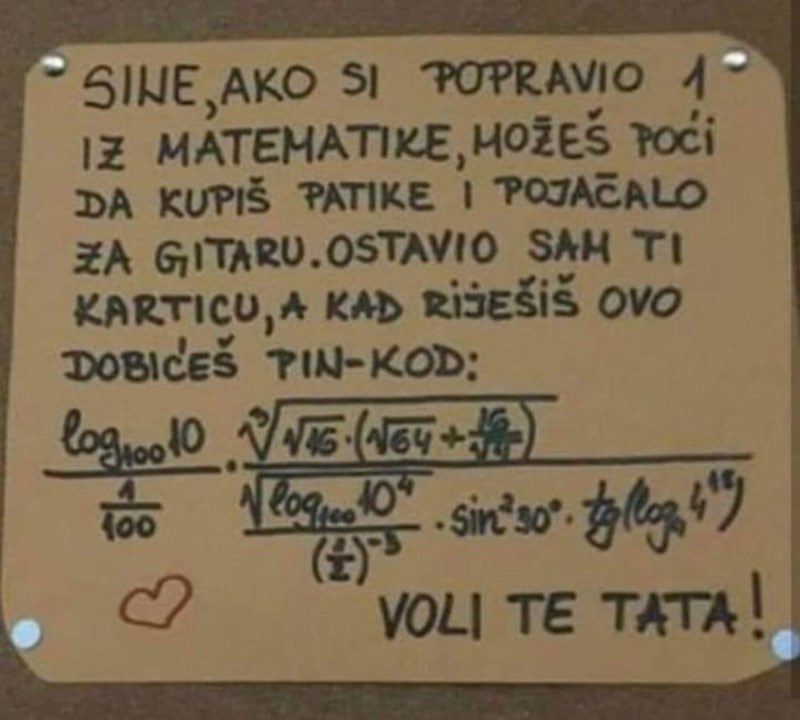 SINE, AKO SI POPRAVIO 1
IZ MATEMATIKE, MOŽEŠ POĆI
DA KUPIŠ PATIKE I POJAČALO
ZA GITARU. OSTAVIO SAM TI
KARTICU, A KAD RIJEŠIŠ OVO
DOBIĆEŠ PIN-KOD:
log₁₀₀10 / (1/100) · ∛(√16·(√64+
√(log₁₀₀10⁴) / · sin²30° · tg(log₄4
VOLI TE TATA!